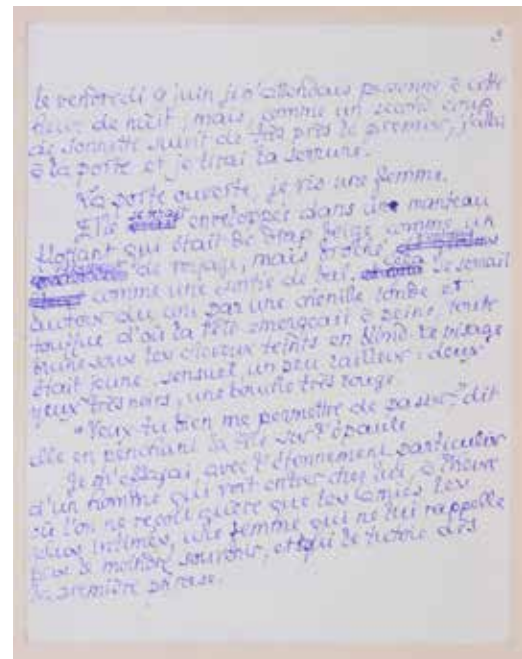 3
le vendredi 9 juin je n'attendais personne à cette
heure de nuit; mais, comme un second coup
de sonnette suivit de très près le premier, j'allai
à la porte et je tirai la serrure.
La porte ouverte, je vis une femme.
Elle enveloppée dans un manteau
flottant qui était de drap beige comme un
de voyage, mais broché
comme une sortie de bal. Cela se serrait
autour du cou par une chenille ronde et
touffue d'où la tête émergeait à peine, toute
brune sous les cheveux teints en blond. Le visage
était jeune, sensuel, un peu railleur: deux
yeux très noirs, une bouche très rouge
"Veux tu bien me permettre de passer," dit
elle en penchant la tête sur l'épaule
Je m'effaçai avec l'étonnement particulier
d'un homme qui voit entrer chez lui, à l'heure
où l'on ne reçoit guère que les amies les
plus intimes, une femme qui ne lui rappelle
pas le moindre souvenir, et qui le tutoie dès
la première phrase.